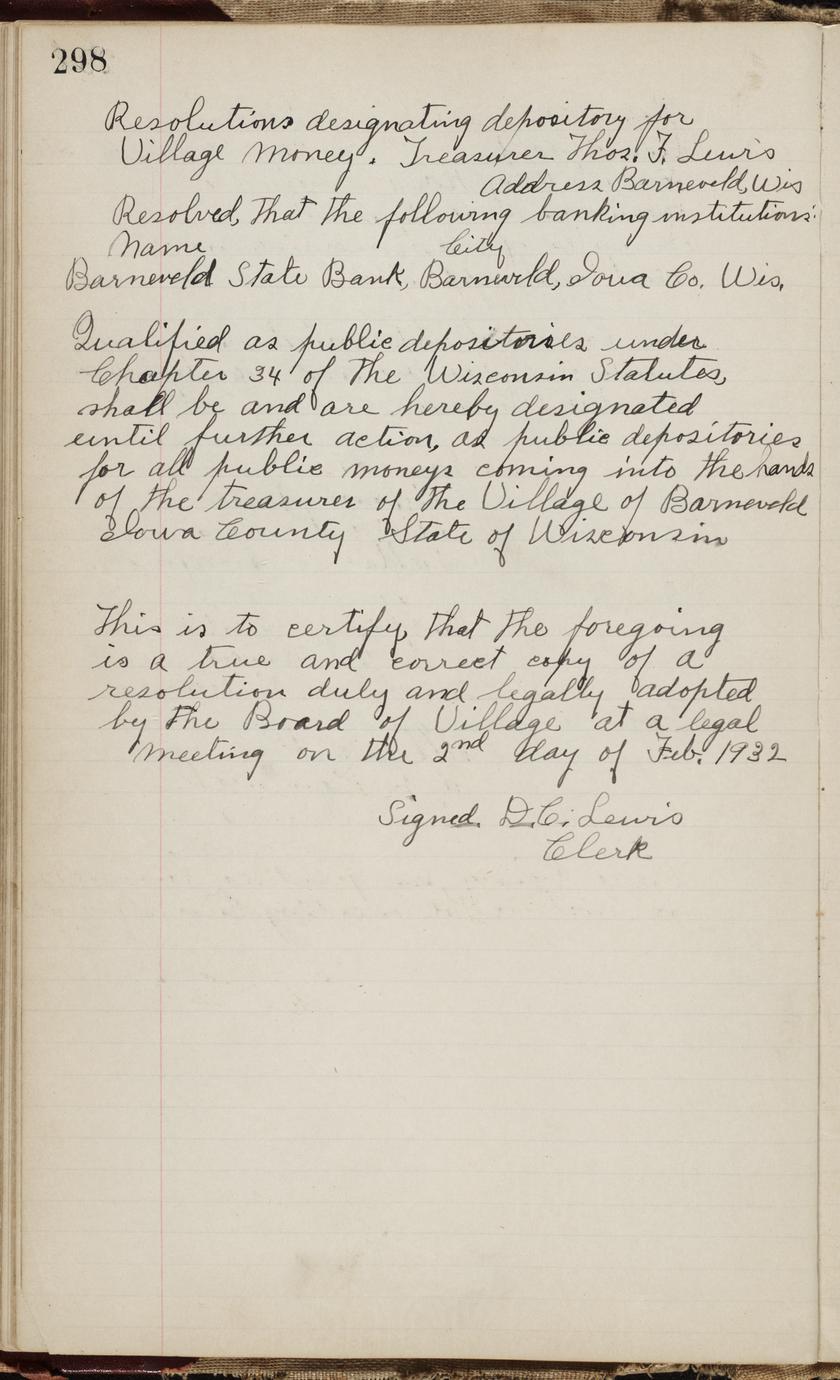 298
Resolutions designating depository for
Village Money. Treasurer Thos. F. Lewis
Address Barneveld, Wis
Resolved, That the following banking institutions:
Name City
Barneveld State Bank, Barneveld, Iowa Co. Wis.
Qualified as public depositories under
Chapter 34 of the Wisconsin Statutes,
shall be and are hereby designated
until further action, as public depositories
for all public moneys coming into the hands
of the treasurer of the Village of Barneveld
Iowa County State of Wisconsin
This is to certify, that the foregoing
is a true and correct copy of a
resolution duly and legally adopted
by the Board of Village at a legal
meeting on the 2nd day of Feb. 1932
Signed D.C. Lewis
Clerk